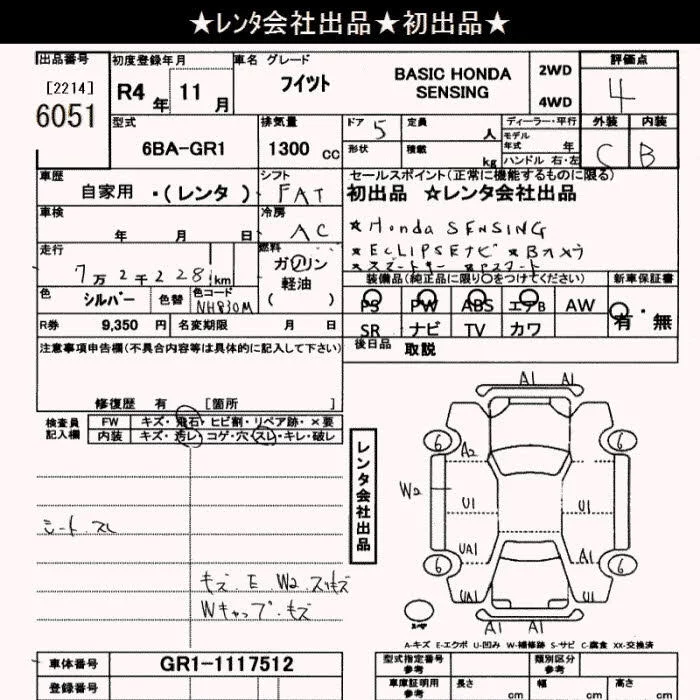 ★レンタ会社出品★初出品★
出品番号 初度登録年月 車名 グレード 評価点
[2214] 6051 R4 年 11 月 フイツト BASIC HONDA SENSING 2WD 4WD 4
型式 排気量 ドア 5 定員 人 ディーラー・平行 外装 内装
6BA-GR1 1300 cc 形状 積載 kg モデル年式 年 C B
ハンドル 右・左
車歴 シフト セールスポイント(正常に機能するものに限る)
自家用 ・(レンタ) FAT 初出品 ☆レンタ会社出品
車検 年 月 日 冷房 AC ★Honda SENSING
走行 燃料 ★ECLIPSEナビ ★Bカメラ
7万2千228km ガソリン ★スマートキー ★Pスタート
軽油 ( ) 装備品(純正品に限り○をつけてください) 新車保証書
色 シルバー 色替 色コード NH830M PS PW ABS エアB AW 有・無
R券 9,350 円 名変期限 月 日 SR ナビ TV カワ
注意事項申告欄(不具合内容等は具体的に記入して下さい) 後日品 取説
修復歴 有 [箇所 ]
検査員記入欄 FW キズ・飛石・ヒビ割・リペア跡・×要
内装 キズ・汚レ・コゲ・穴・スレ・キレ・破レ
レンタ会社出品
A1 A1
6 6
A2
W2 U1 U1
UA1 A1
6 6
UA1 UA1
A1 A1
シート スレ
キズ E W2 スリキズ
Wキャップ キズ
A-キズ E-エクボ U-凹み W-補修跡 S-サビ C-腐食 XX-交換済
車体番号 GR1-1117512 型式指定番号 参考 類別区分 参考
登録番号 車庫証明用 参考 長さ cm 幅 cm 高さ cm